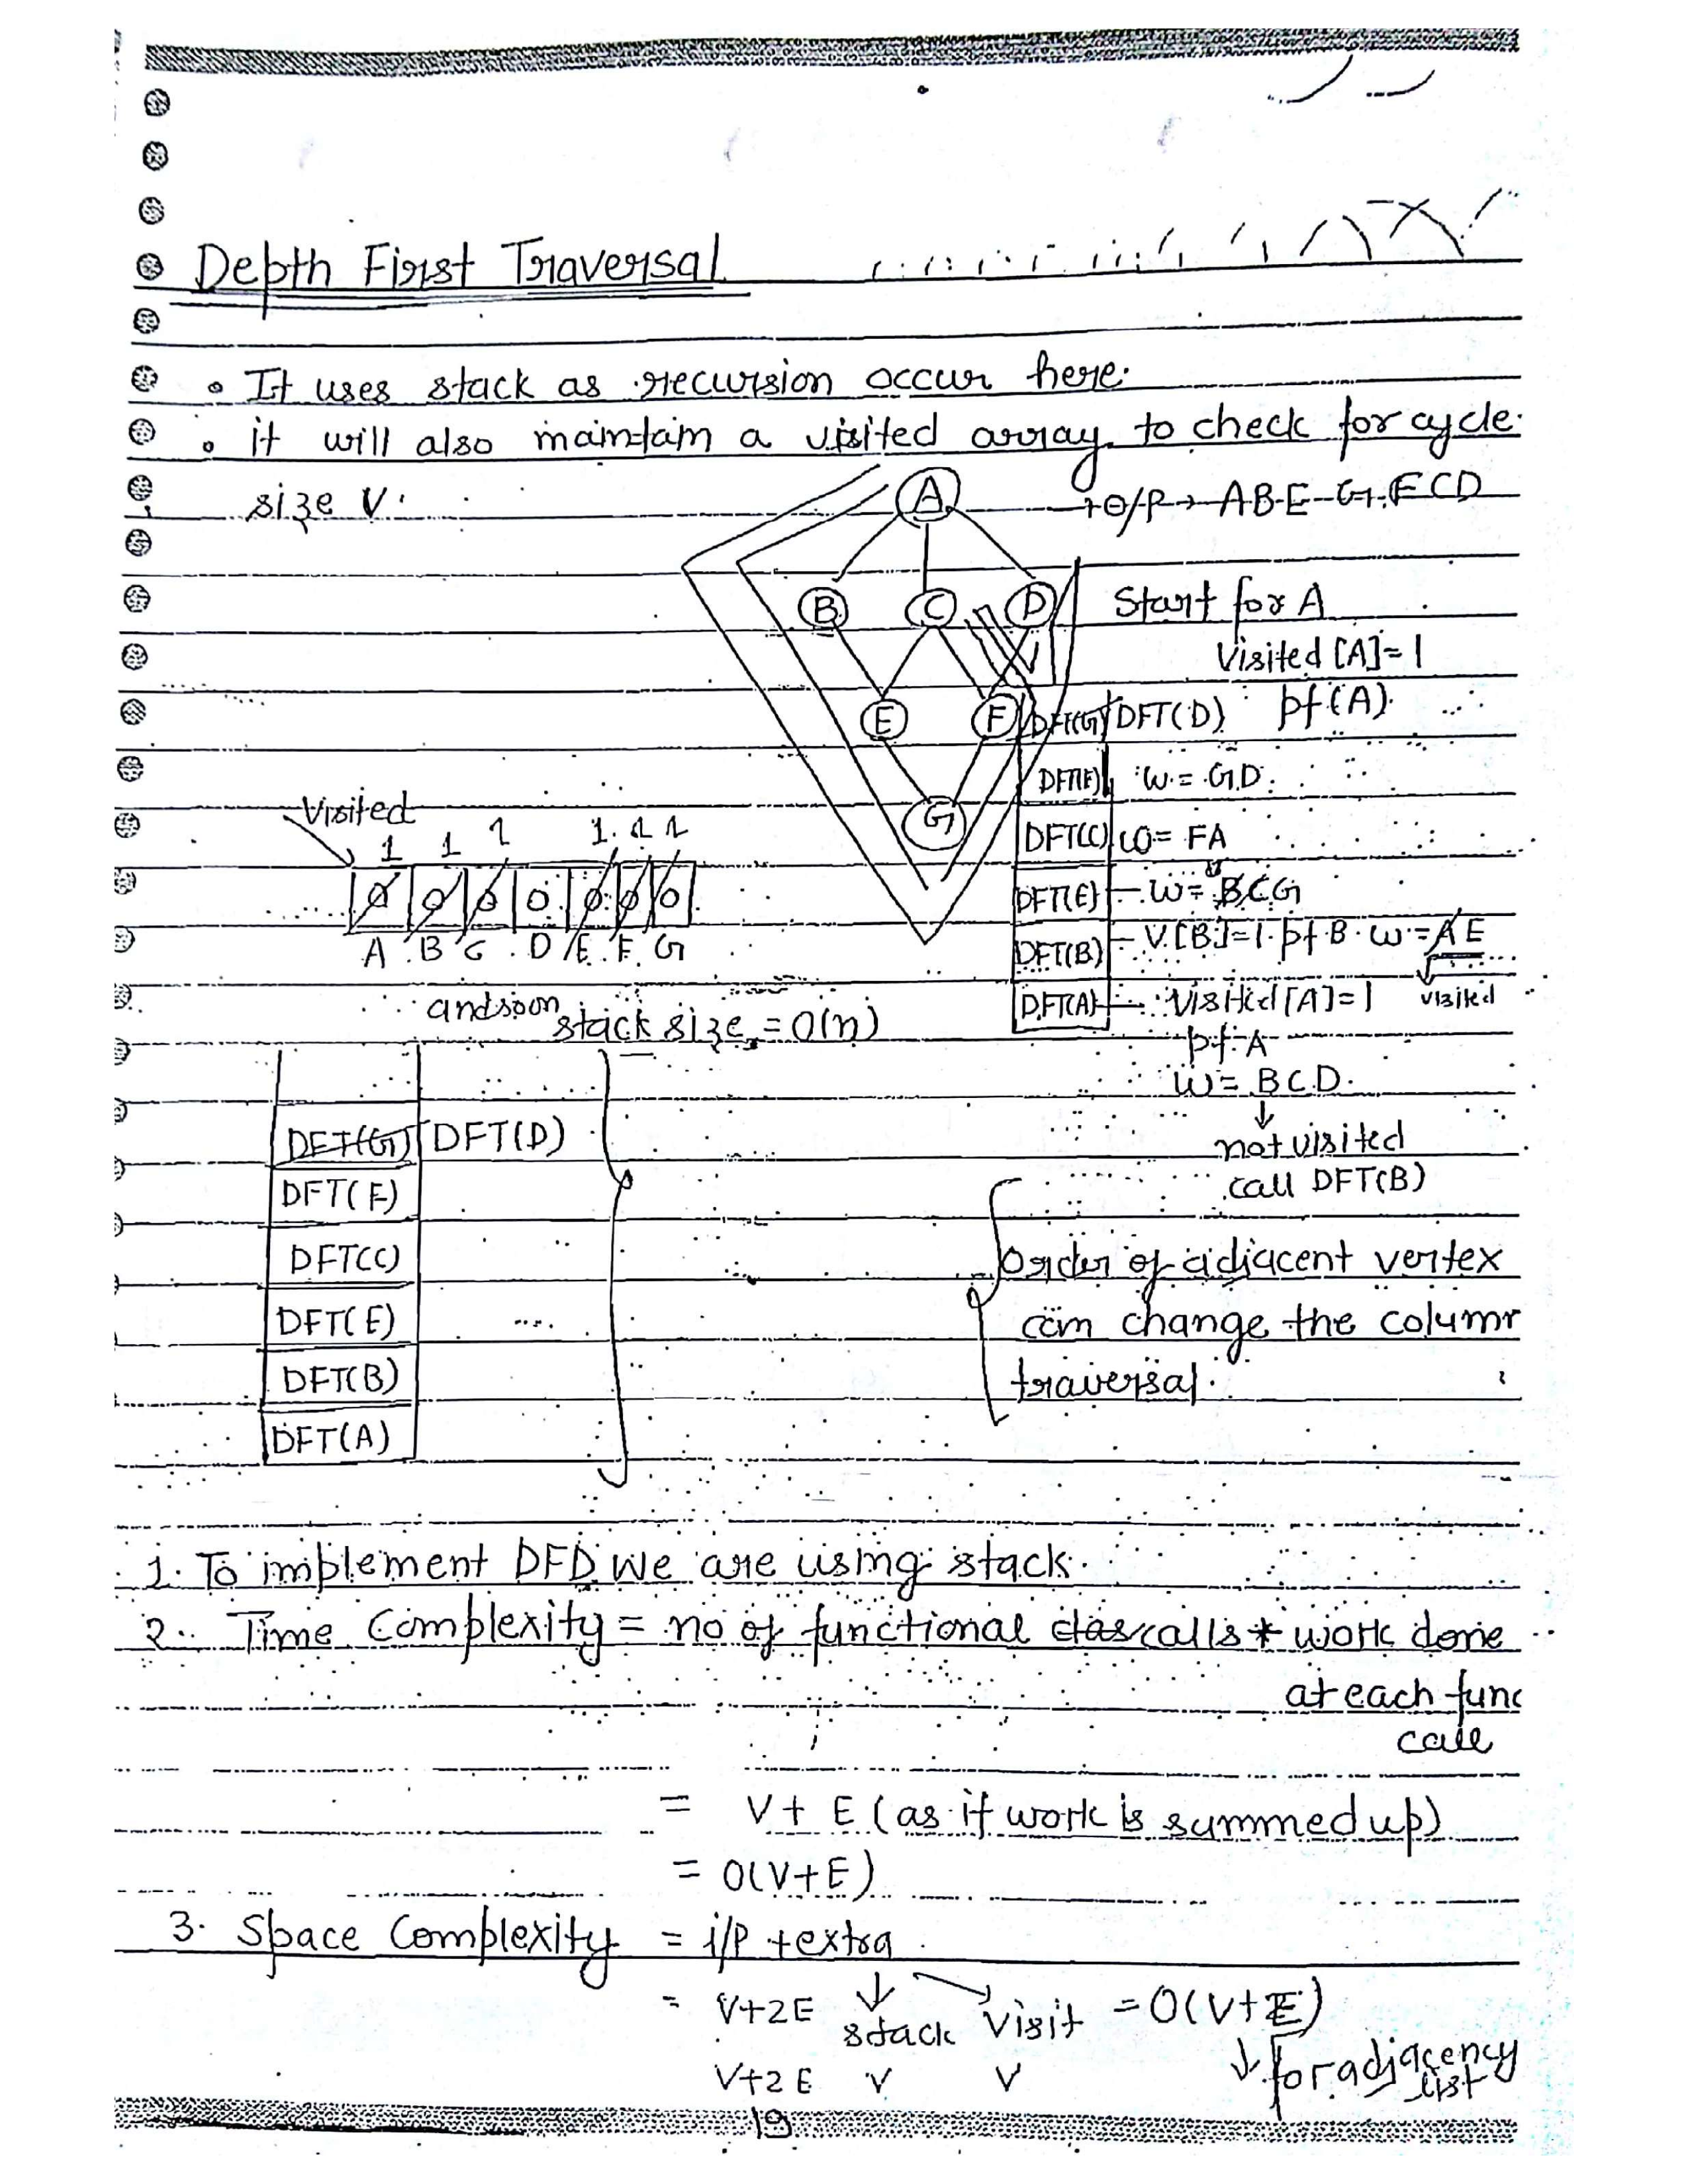 Depth First Traversal
• It uses stack as recursion occur here.
• it will also maintain a visited array to check for cycle.
size V.
A
→ O/P → A B E G F C D
B C D
Start for A
Visited [A] = 1
E F
DFT(G) DFT(D) pf (A).
DFT(F) w = G D.
G
Visited
DFT(C) w = F A
1 1 1 1 1 1
0 0 0 0 0 0 0
DFT(E) – w = B C G
A B C D E F G
DFT(B) – V.[B] = 1. pf B. w = A E
visited
DFT(A) – Visited [A] = 1
and so on
stack size = O(n)
pf A
w = B C D.
↓
not visited
call DFT(B)
DFT(G) DFT(D)
DFT(F)
DFT(C)
DFT(E) ....
DFT(B)
DFT(A)
Order of adjacent vertex
can change the column
traversal.
1. To implement DFD we are using stack.
2. Time Complexity = no of functional calls * work done
at each func
call
= V + E (as if work is summed up)
= O(V+E)
3. Space Complexity = i/P + extra
= V+2E stack visit = O(V+E)
V+2E V V ↓ for adjacency
list
19